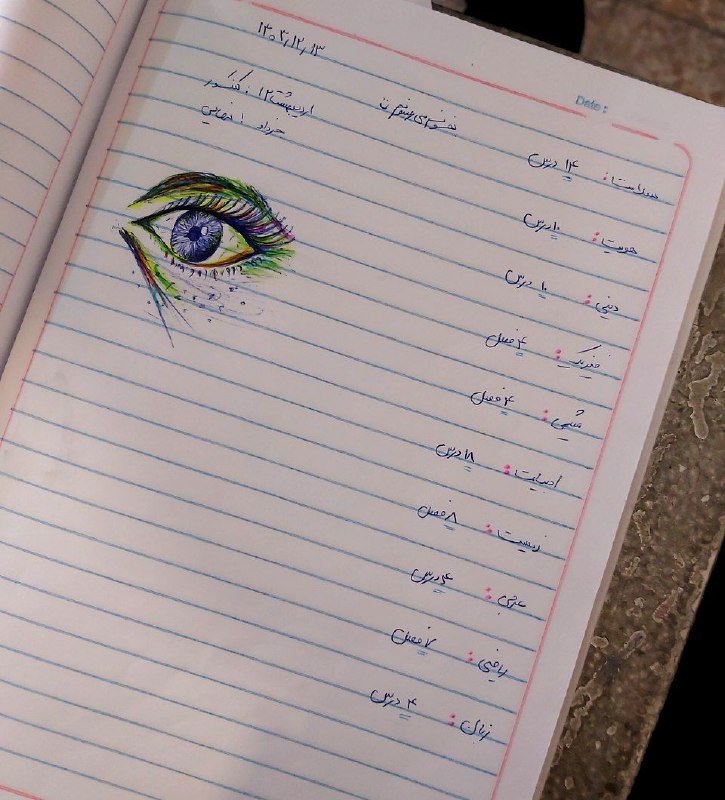 Date:
۱۴۰۳٫۱۲٫۱۳
اردیبهشت ۱۲ : کنکور
خرداد ۱ : نهایی
سلامت : ۱۴ درس
هویت : ۱۰ درس
دینی : ۱۰ درس
فیزیک : ۴ فصل
شیمی : ۴ فصل
ادبیات : ۱۸ درس
زیست : ۸ فصل
عربی : ۴ درس
ریاضی : ۷ فصل
زبان : ۴ درس